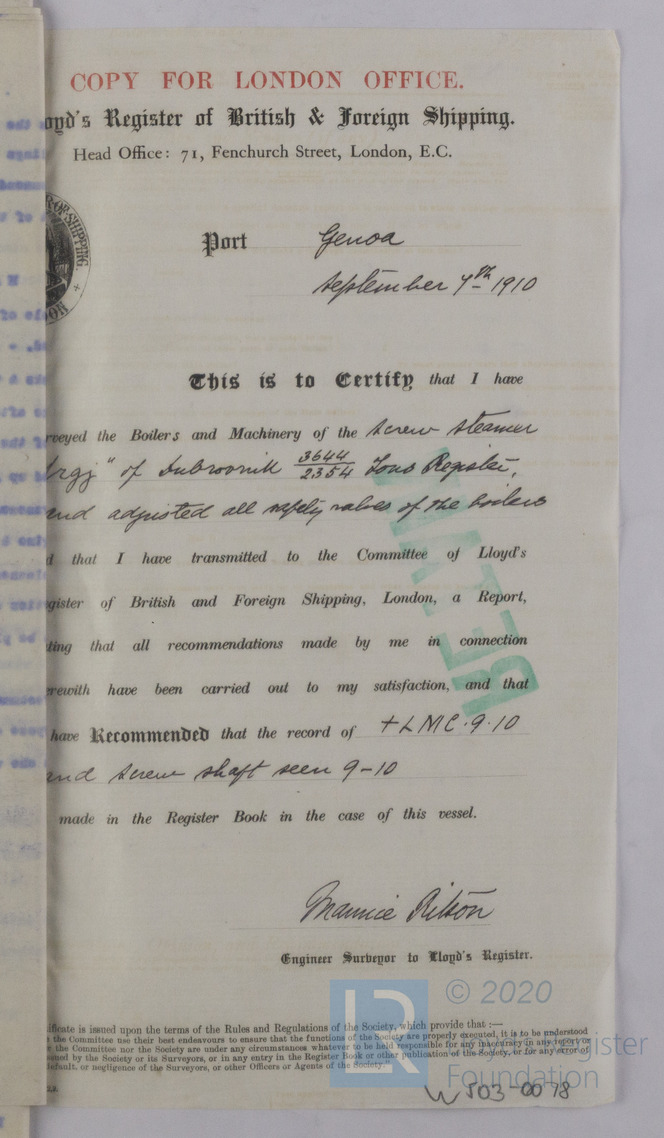 COPY FOR LONDON OFFICE.
oyd's Register of British & Foreign Shipping.
Head Office: 71, Fenchurch Street, London, E.C.
Port Genoa
September 7th 1910
This is to Certify that I have
rveyed the Boilers and Machinery of the screw steamer
" of Dubrovnik 3644/2354 Tons Register,
and adjusted all safety valves of the boilers
d that I have transmitted to the Committee of Lloyd's
gister of British and Foreign Shipping, London, a Report,
ting that all recommendations made by me in connection
erewith have been carried out to my satisfaction, and that
have Recommended that the record of + LMC. 9.10
and screw shaft seen 9-10
made in the Register Book in the case of this vessel.
Maurice Ritson
Engineer Surveyor to Lloyd's Register.
ificate is issued upon the terms of the Rules and Regulations of the Society, which provide that :—
the Committee use their best endeavours to ensure that the functions of the Society are properly executed, it is to be understood
the Committee nor the Society are under any circumstances whatever to be held responsible for any inaccuracy in any report or
issued by the Society or its Surveyors, or in any entry in the Register Book or other publication of the Society, or for any error of
default, or negligence of the Surveyors, or other Officers or Agents of the Society."
LR
© 2020
Lloyd's Register
Foundation
W503-0078